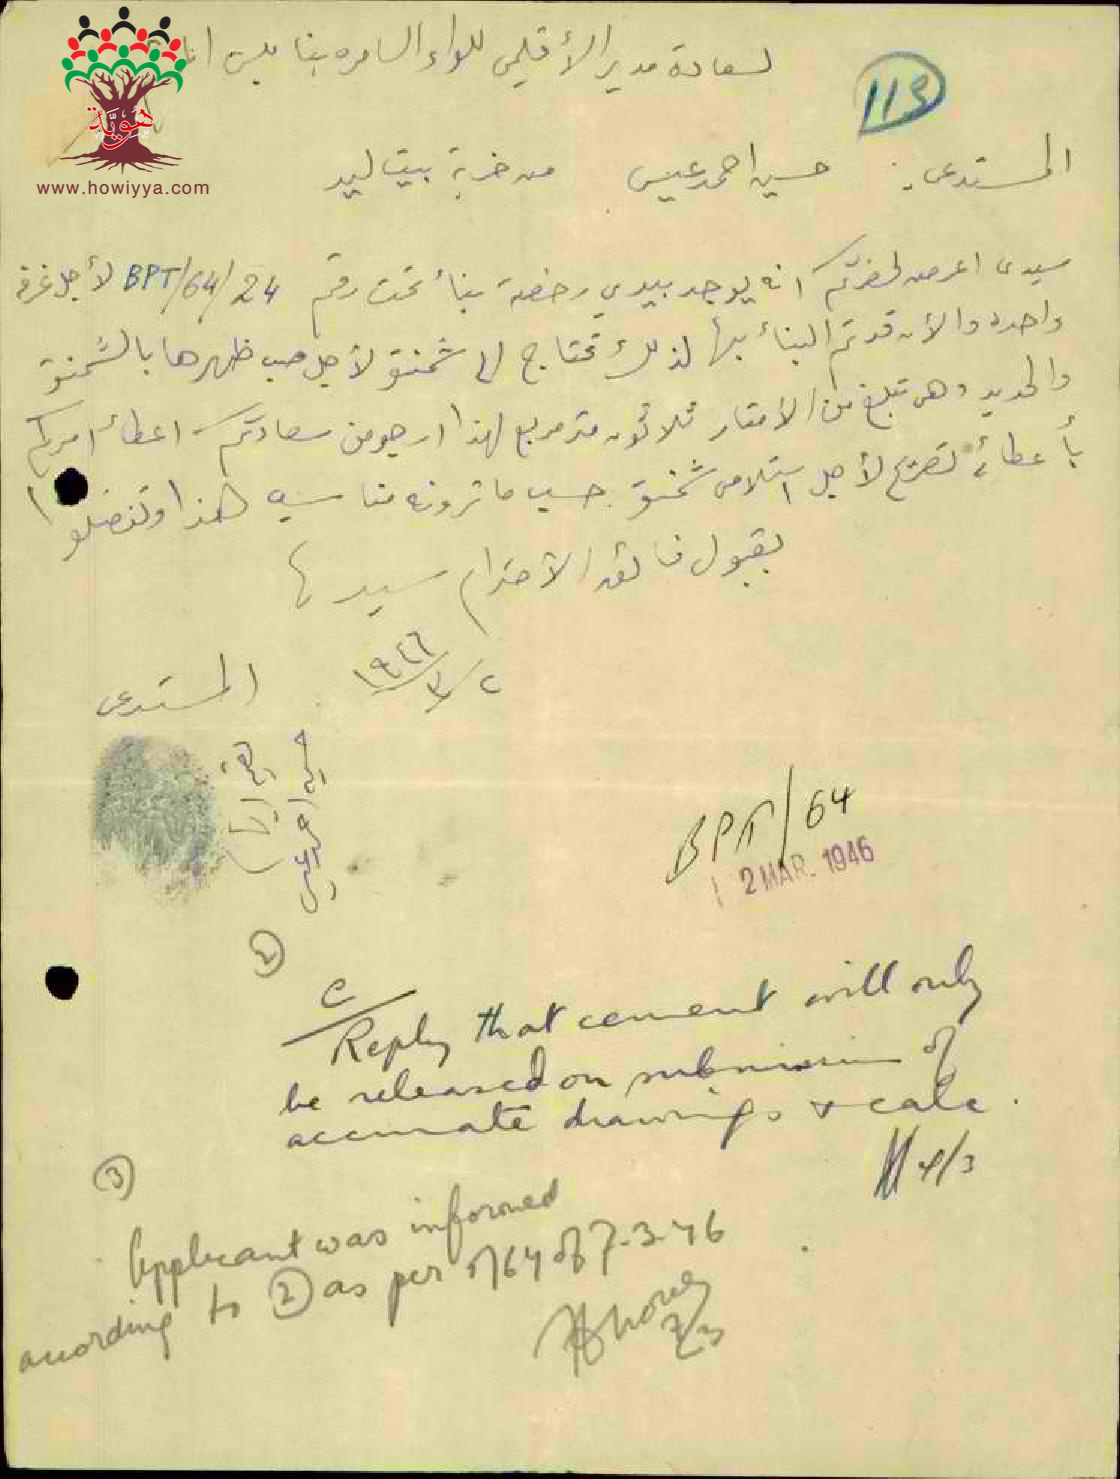 هوية
www.howiyya.com
لسعادة مدير الأقليمي للواء السامره بنابلس
113
المستدعي: حسين احمد عيسى من خربة بيت ليد
سيدي اعرض لحضرتكم انه يوجد بيدي رخصة بناء تحت رقم BPT/64/24 لأجل غرفة
واحده والأن قد تم البناء بها لذلك تحتاج الى شمنتو لأجل صب ظهرها بالشمنتو
والحديد وهي تبلغ من الأمتار ثلاثون متر مربع لهذا ارجو من سعادتكم اعطاء امركم
بأعطائي تصريح لأجل استلامي شمنتو حسب ما ترونه مناسب هذا وتفضلوا
بقبول فائق الاحترام سيدي
٢/٣/١٩٤٦
المستدعي
حسين احمد عيسى
BPT/64
2 MAR. 1946
2
C/
Reply that cement will only
be released on submission of
accurate drawings & calc.
4/3
3
Applicant was informed
according to 2 as per of 7.3.46